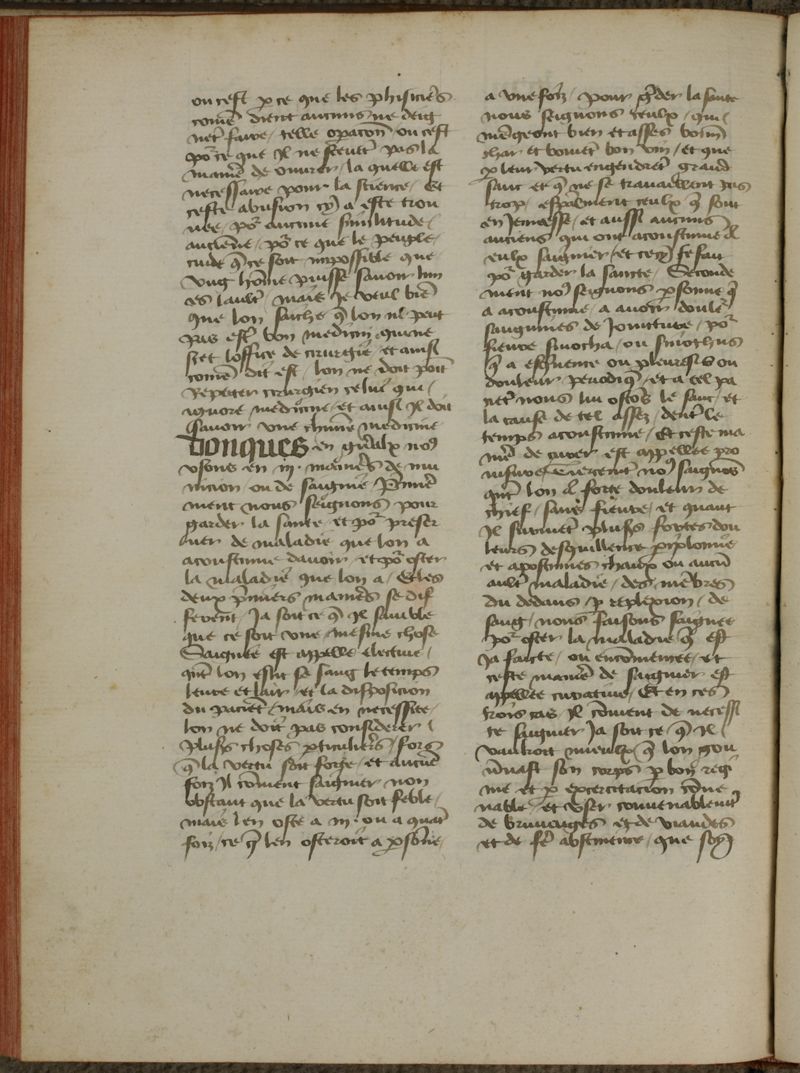 ou cest p ce que les phisiciẽs
come dient aucuns ne deig
net faire telle opacon ou cest
por ce que Il ne seuet pas la
maniẽ de ouurer / la quelle est
necessaire pour la science / Et
ceste abusion cy a este trou
uee / por aucune similitude /
anciene / por ce que le peuple /
cuide q̃ ce soit impossible que
vng hõme puisse sauoir lun
et lault / mais Je veul biẽ
que lon sache q̃ lon nl peut
pas estr bon medicin qui ne
scet loffice de cirurgie et ainsi
come dit est / lon ne doit poit
Reputer cirurgien celui qui /
ignore medicine / et ainsi Il doit
sauoir vne chune medicine
Donques en gnãlx nos
vsons en iij . maniẽs de mi
nicion ou de saignie / Primie
ment nous seignons pour
garder la sante et por preser
uer de maladie que lon a
acoustume dauoir / et por oster
la maladie que lon a / Et les
deux pmiers maniẽs se dif
ferent / Ja soit ce q̃ Il samble
que ce soit vne mesme chose
Saignee est appelle electiue /
qñt lon eslit se sang le temps
leure et lair et la disposicion
du paciet / mais en necessite /
lon ne doit pas considerer /
plusrs choses pticulieres / fors
q̃ la vertu soit forte / et aucue
foiz Il cõuient saignier non
obstant que la vertu soit feble /
mais len oste a iij . ou a quatr
foiz / ce q̃ len osteroit a psone /
a vne foiz / pour gder la sante
nous seignons ceulx / qui /
mẽgeoit bien et asses boinne
char et boiuet bon vin / et que
p leur vertu engendret grand
sanc et q̃ ne se trauaillent pas
trop / espalment ceulx q̃ sont
en Jeunesse / et aussi aucuns
anciens qui ont acoustume d
eulx saignier / et cecy se fait
por garder la sancte / Seconde
ment nos seignons psonne q̃
a acoustume / a auoir doulr
sanguines de Jointure / por
fieure sinocha / ou sinothus
q̃ a esquience ou pleuresis ou
douleur / periodiq̃ / et a cel pa
ciet nous lui ostos le sanc / et
la cause de tel assez / deuant le
temps acoustume / Et ceste ma
niẽ de curer est appellee pro
uisiue / Tiercent nos saignos
qñt lon a forte douleur de
chief / sans fieure / et quant
Il suruiet plusrs fortes dou
leurs desquillence piplomie
et apostumes chaux ou aucu
aultr maladie / des mẽbres
du dedans / p replexion / de
sang / nous faisons saignee
por oster la maladie q̃ est
Ja faicte / ou encõmencee / et
ceste maniẽ de saignier est
appellee curatiue / Et en ces
trois cas Il cõuient de necessi
te saignier Ja soit ce q̃ Il
vauldroit mieulx q̃ lon gou
uernast son corps p bon regi
me et p excercitacion cõue
nable / et vser conuenablemt
de bruuaiges et de viandes
et de fe abstinence / que sey